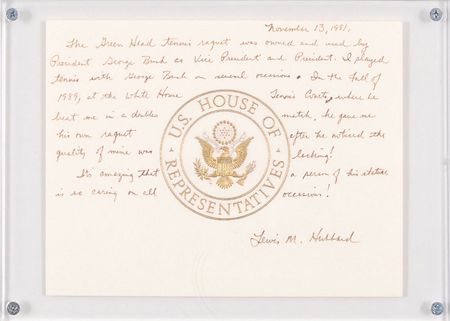 November 13, 1991.
The Green Head tennis raquet was owned and used by
President George Bush as Vice President and President. I played
tennis with George Bush on several occasions. In the Fall of
1989, at the White House Tennis Courts, where he
beat me in a doubles match, he gave me
his own raquet after he noticed the
quality of mine was lacking!
It's amazing that a person of his stature
is so caring on all occasions!
Lewis M. Hubbard
U.S. HOUSE OF REPRESENTATIVES